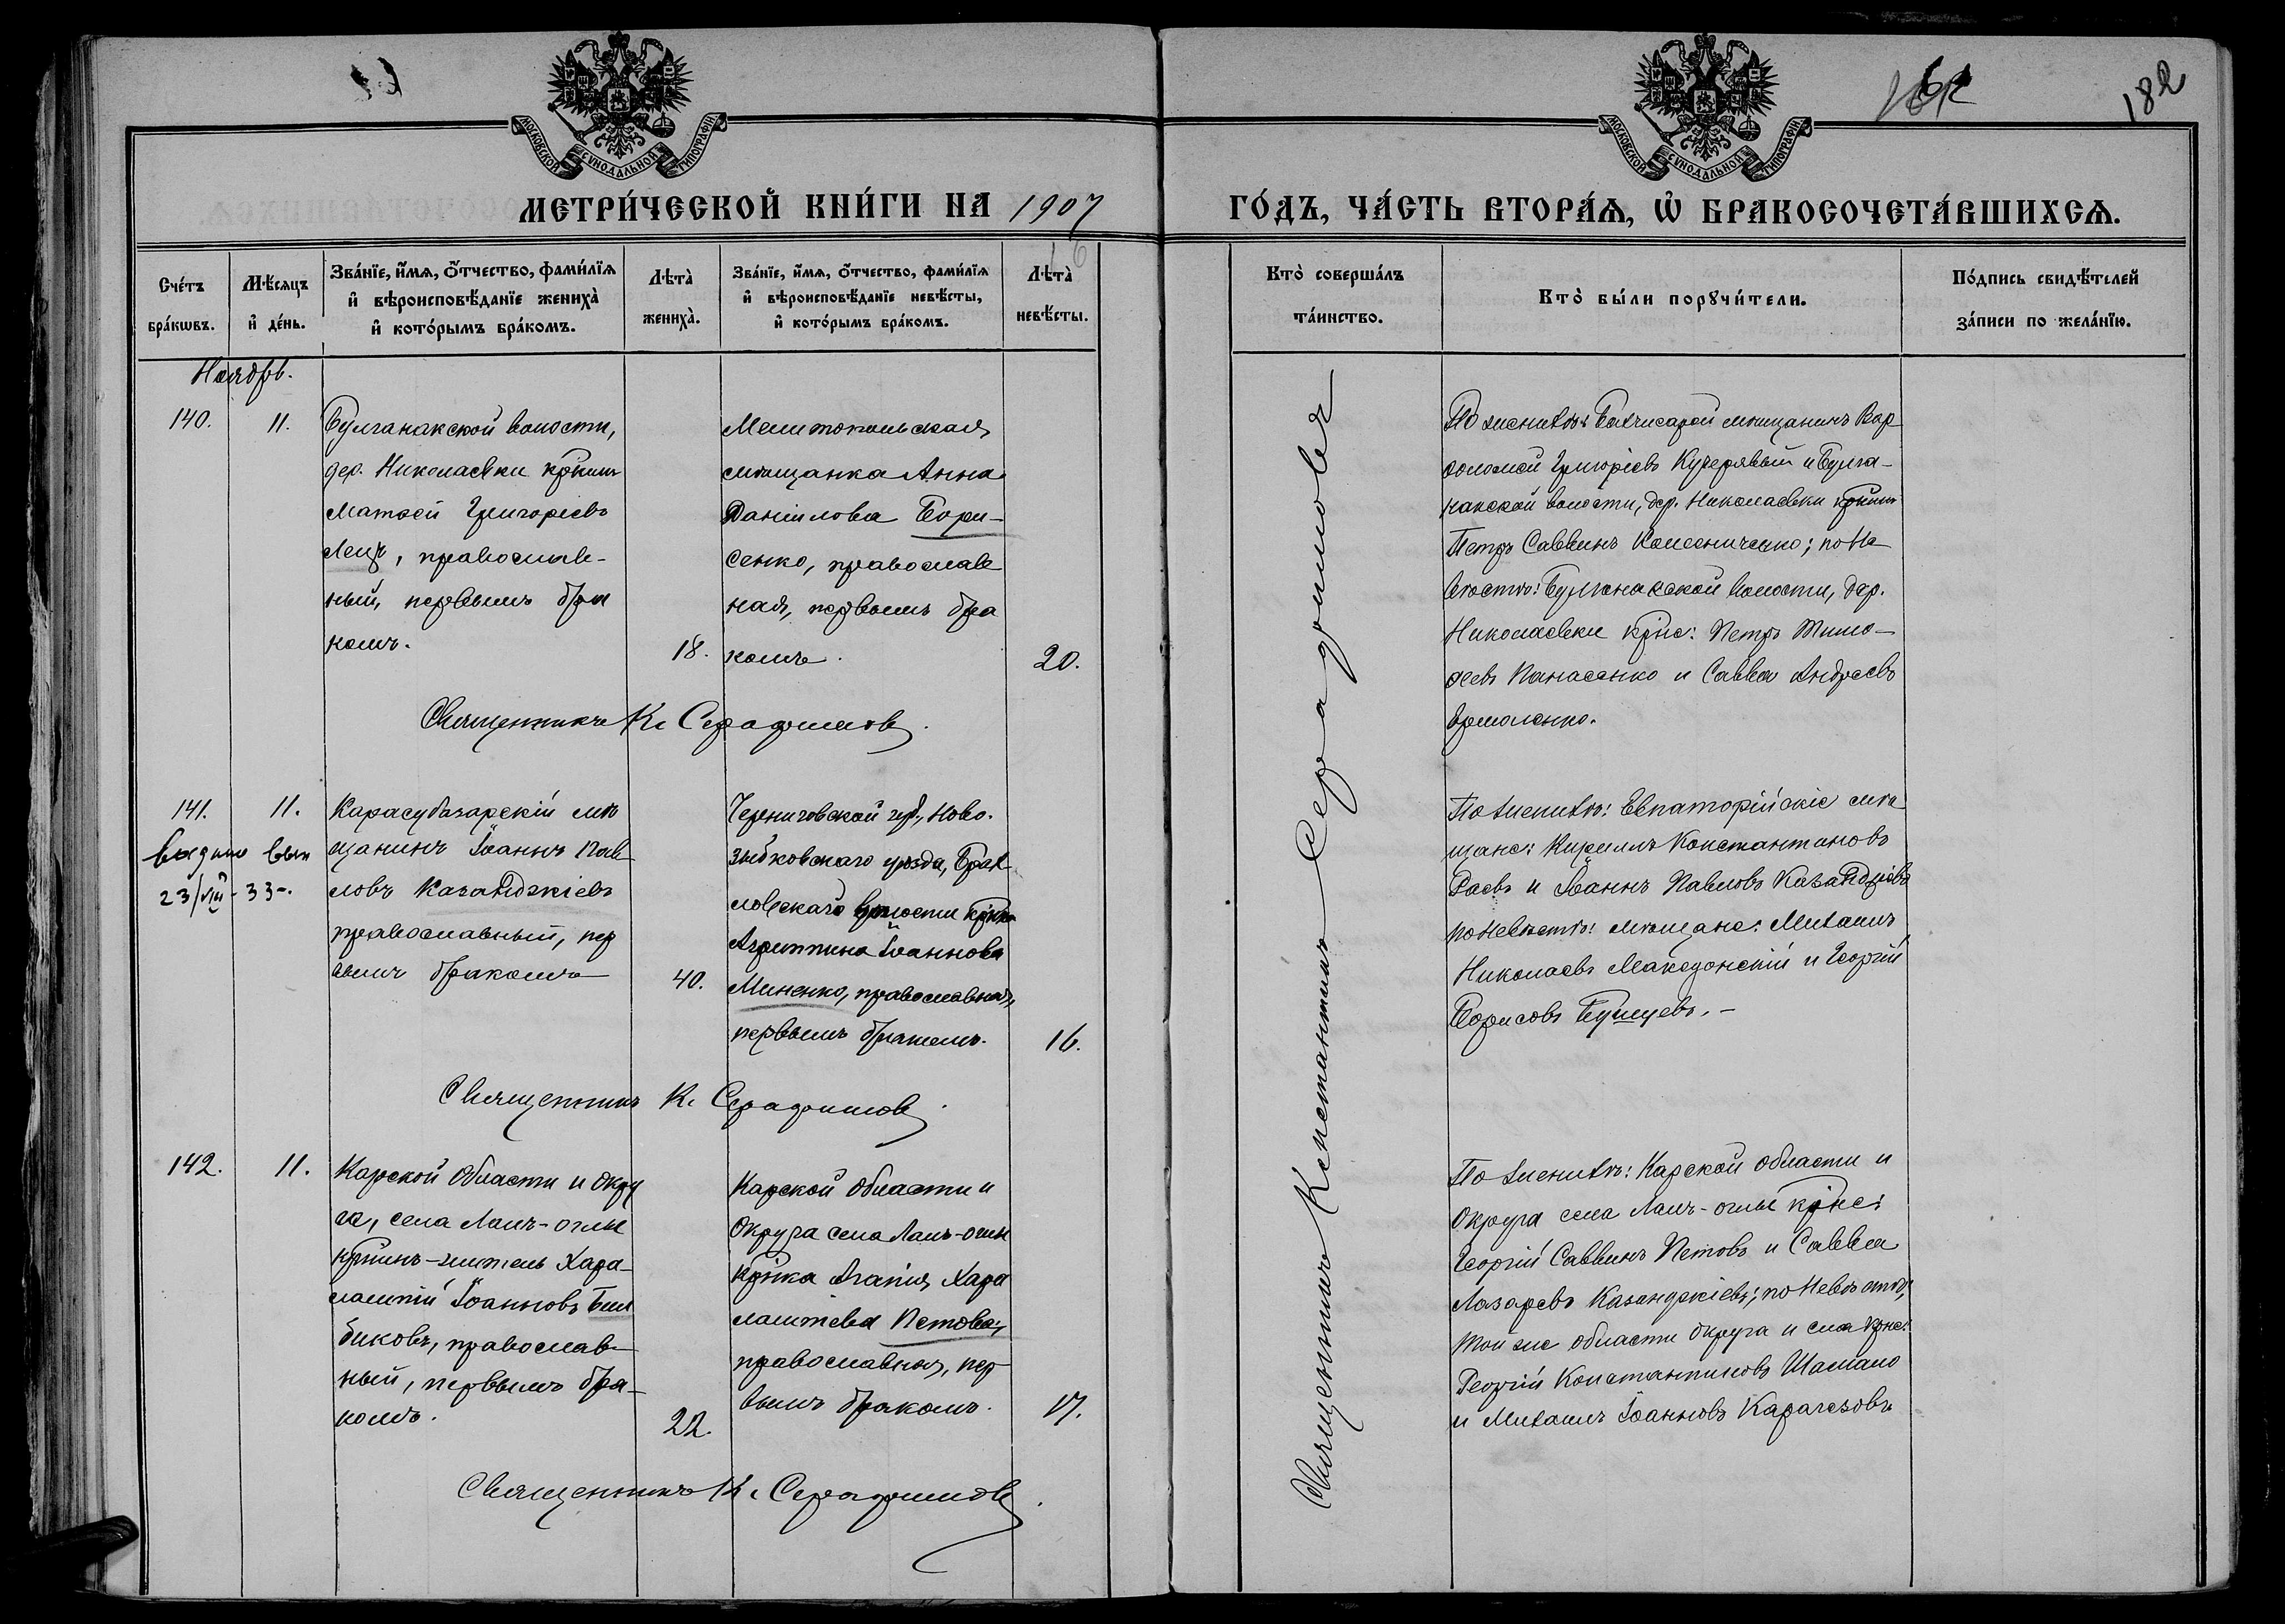 182
МОСКОВСКОЙ СѴНОДАЛЬНОЙ ТИПОГРАФІИ
МОСКОВСКОЙ СѴНОДАЛЬНОЙ ТИПОГРАФІИ
МЕТРИ́ЧЕСКОЙ КНИ́ГИ НА 1907
ГО́ДЪ, ЧА́СТЬ ВТОРА́Ѧ, Ѽ БРАКОСОЧЕТА́ВШИХСѦ.
Сче́тъ
бра́кѡвъ.
Мѣ́сѧцъ
и҆ де́нь.
Зва́нїе, и҆́мѧ, ѻ҆́тчество, фами́лїѧ
и҆ вѣроисповѣ́данїе жениха̀
и҆ кото́рымъ бра́комъ.
Лѣ́та̀
жениха̀.
Зва́нїе, и҆́мѧ, ѻ҆́тчество, фами́лїѧ
и҆ вѣроисповѣ́данїе невѣ́сты,
и҆ кото́рымъ бра́комъ.
Лѣ́та̀
невѣ́сты.
Кто̀ соверша́лъ
та́инство.
Кто̀ бы́ли порꙋчи́тели.
По́дпись свидѣ́телей
за́писи по жела́нїю.
Ноябрь.
140.
11.
Булганакской волости,
дер. Николаевки кр̃нинъ
Матѳей Григоріевъ
Ленц, православ-
ный, первымъ бра
комъ.
18.
Мелитопольская
мѣщанка Анна
Даніилова Бори-
сенко, православ
ная, первымъ бра
комъ.
20.
Священникъ К. Серафимовъ.
По женихѣ: Бахчисарай мѣщанинъ Вар
ѳоломей Григоріевъ Кучерявый и Булга-
накской волости, дер. Николаевки кр̃нинъ
Петръ Саввинъ Колесниченко; по не
вѣстѣ: Булганакской волости, дер.
Николаевки кр̃не: Петръ Тимо-
ѳеевъ Панасенко и Савва Андреевъ
Ермоленко.
141.
11.
выдано вып
23/VIII-33-.
Карасубазарскій мѣ
щанинъ Іоаннъ Пав
ловъ Казанджіевъ
православный, пер
вымъ бракомъ
40.
Черниговской губ., Ново-
зыбковскаго уѣзда,
волости кр̃нка
Агриппина Іоаннова
Миненко, православная,
первымъ бракомъ.
16.
Священникъ К. Серафимовъ.
По женихѣ: Евпаторійскіе мѣ
щане: Кириллъ Константиновъ
Раевъ и Іоаннъ Павловъ Казанджіевъ
по невѣстѣ: мѣщане: Михаилъ
Николаевъ Македонскій и Георгій
Борисовъ. -
142.
11.
Карской области и окру
га, села Лаль-оглы
кр̃нинъ-житель Хара-
лампій Іоанновъ Бил
биковъ, православ-
ный, первымъ бра-
комъ.
22.
Карской области и
округа села Лаль-оглы
кр̃нка Агапія Хара
лампіева Петова,
православная, пер
вымъ бракомъ.
17.
Священникъ К. Серафимовъ.
По женихѣ: Карской области и
округа села Лаль-оглы кр̃не:
Георгій Саввинъ Петовъ и Савва
Лазаревъ Казанджіевъ; по невѣстѣ:
той же области округа и села кр̃не:
Георгій Константиновъ Шамано
и Михаилъ Іоанновъ Карагезовъ
Священникъ Константинъ Серафимовъ